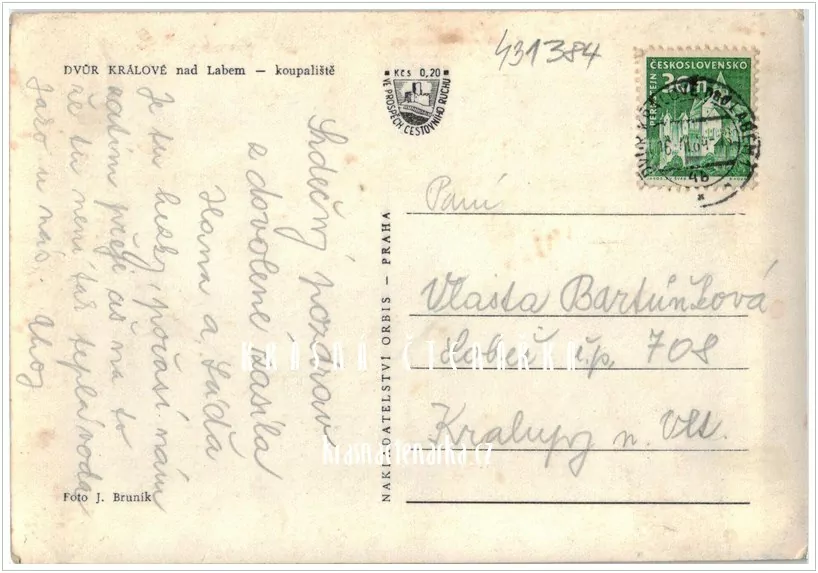 431384
DVŮR KRÁLOVÉ nad Labem — koupaliště
Kčs 0,20
VE PROSPĚCH CESTOVNÍHO RUCHU
ČESKOSLOVENSKO
PERNŠTEJN
30h
Srdečný pozdrav
z dovolené zasílá
Hana a
Je tu hezky, počasí nám
zatím přeje až na to
že tu není tak teplá voda
jako u nás. Ahoj
NAKLADATELSTVÍ ORBIS — PRAHA
Paní
Vlasta Bartůňková
čp. 708
Kralupy n. Vlt.
KRÁSNÁ ČTENÁŘKA
krasnactenarka.cz
Foto J. Bruník